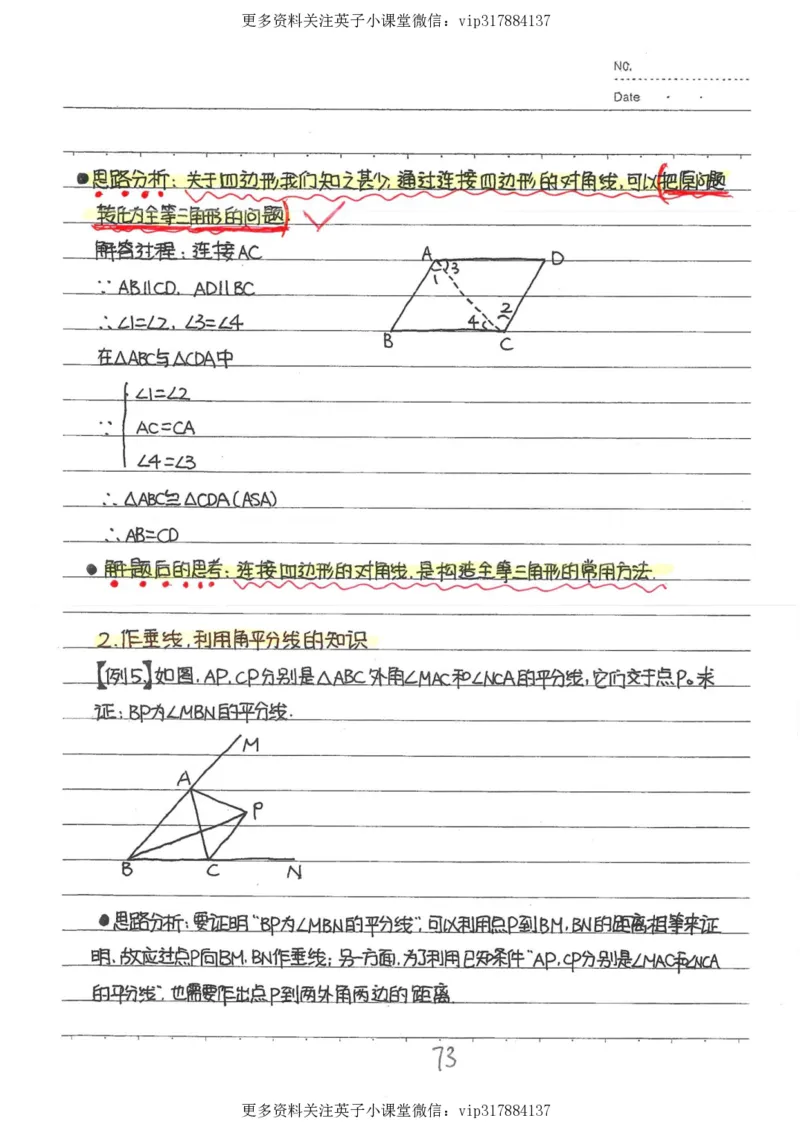 更多资料关注英子小课堂微信：vip317884137
NO.
Date
●思路分析：关于四边形我们知之甚少，通过连接四边形的对角线，可以(把原问题
转化为全等三角形的问题)
解答过程：连接AC
∵AB∥CD，AD∥BC
∴∠1=∠2，∠3=∠4
在△ABC与△CDA中
∠1=∠2
∵ AC=CA
∠4=∠3
∴△ABC≌△CDA(ASA)
∴AB=CD
A 3 D
1
2
4
B C
●解题后的思考：连接四边形的对角线，是构造全等三角形的常用方法.
2.作垂线，利用角平分线的知识
【例5】如图，AP，CP分别是△ABC外角∠MAC和∠NCA的平分线，它们交于点P。求
证：BP为∠MBN的平分线.
M
A
P
B C N
●思路分析：要证明“BP为∠MBN的平分线”，可以利用点P到BM，BN的距离相等来证
明，故应过点P向BM，BN作垂线；另一方面，为了利用已知条件“AP，CP分别是∠MAC和∠NCA
的平分线”，也需要作出点P到两外角两边的距离.
73
更多资料关注英子小课堂微信：vip317884137